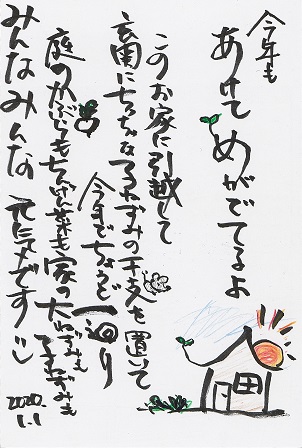 今年も
あけて めがでてるよ
このお家に引越して
玄関にちっちゃなねずみの干支を置いて
今年でちょうど一廻り
庭のかぶらもちんげん菜も家の大ねずみも
子ねずみも
みんなみんな 元気です
2020.1.1